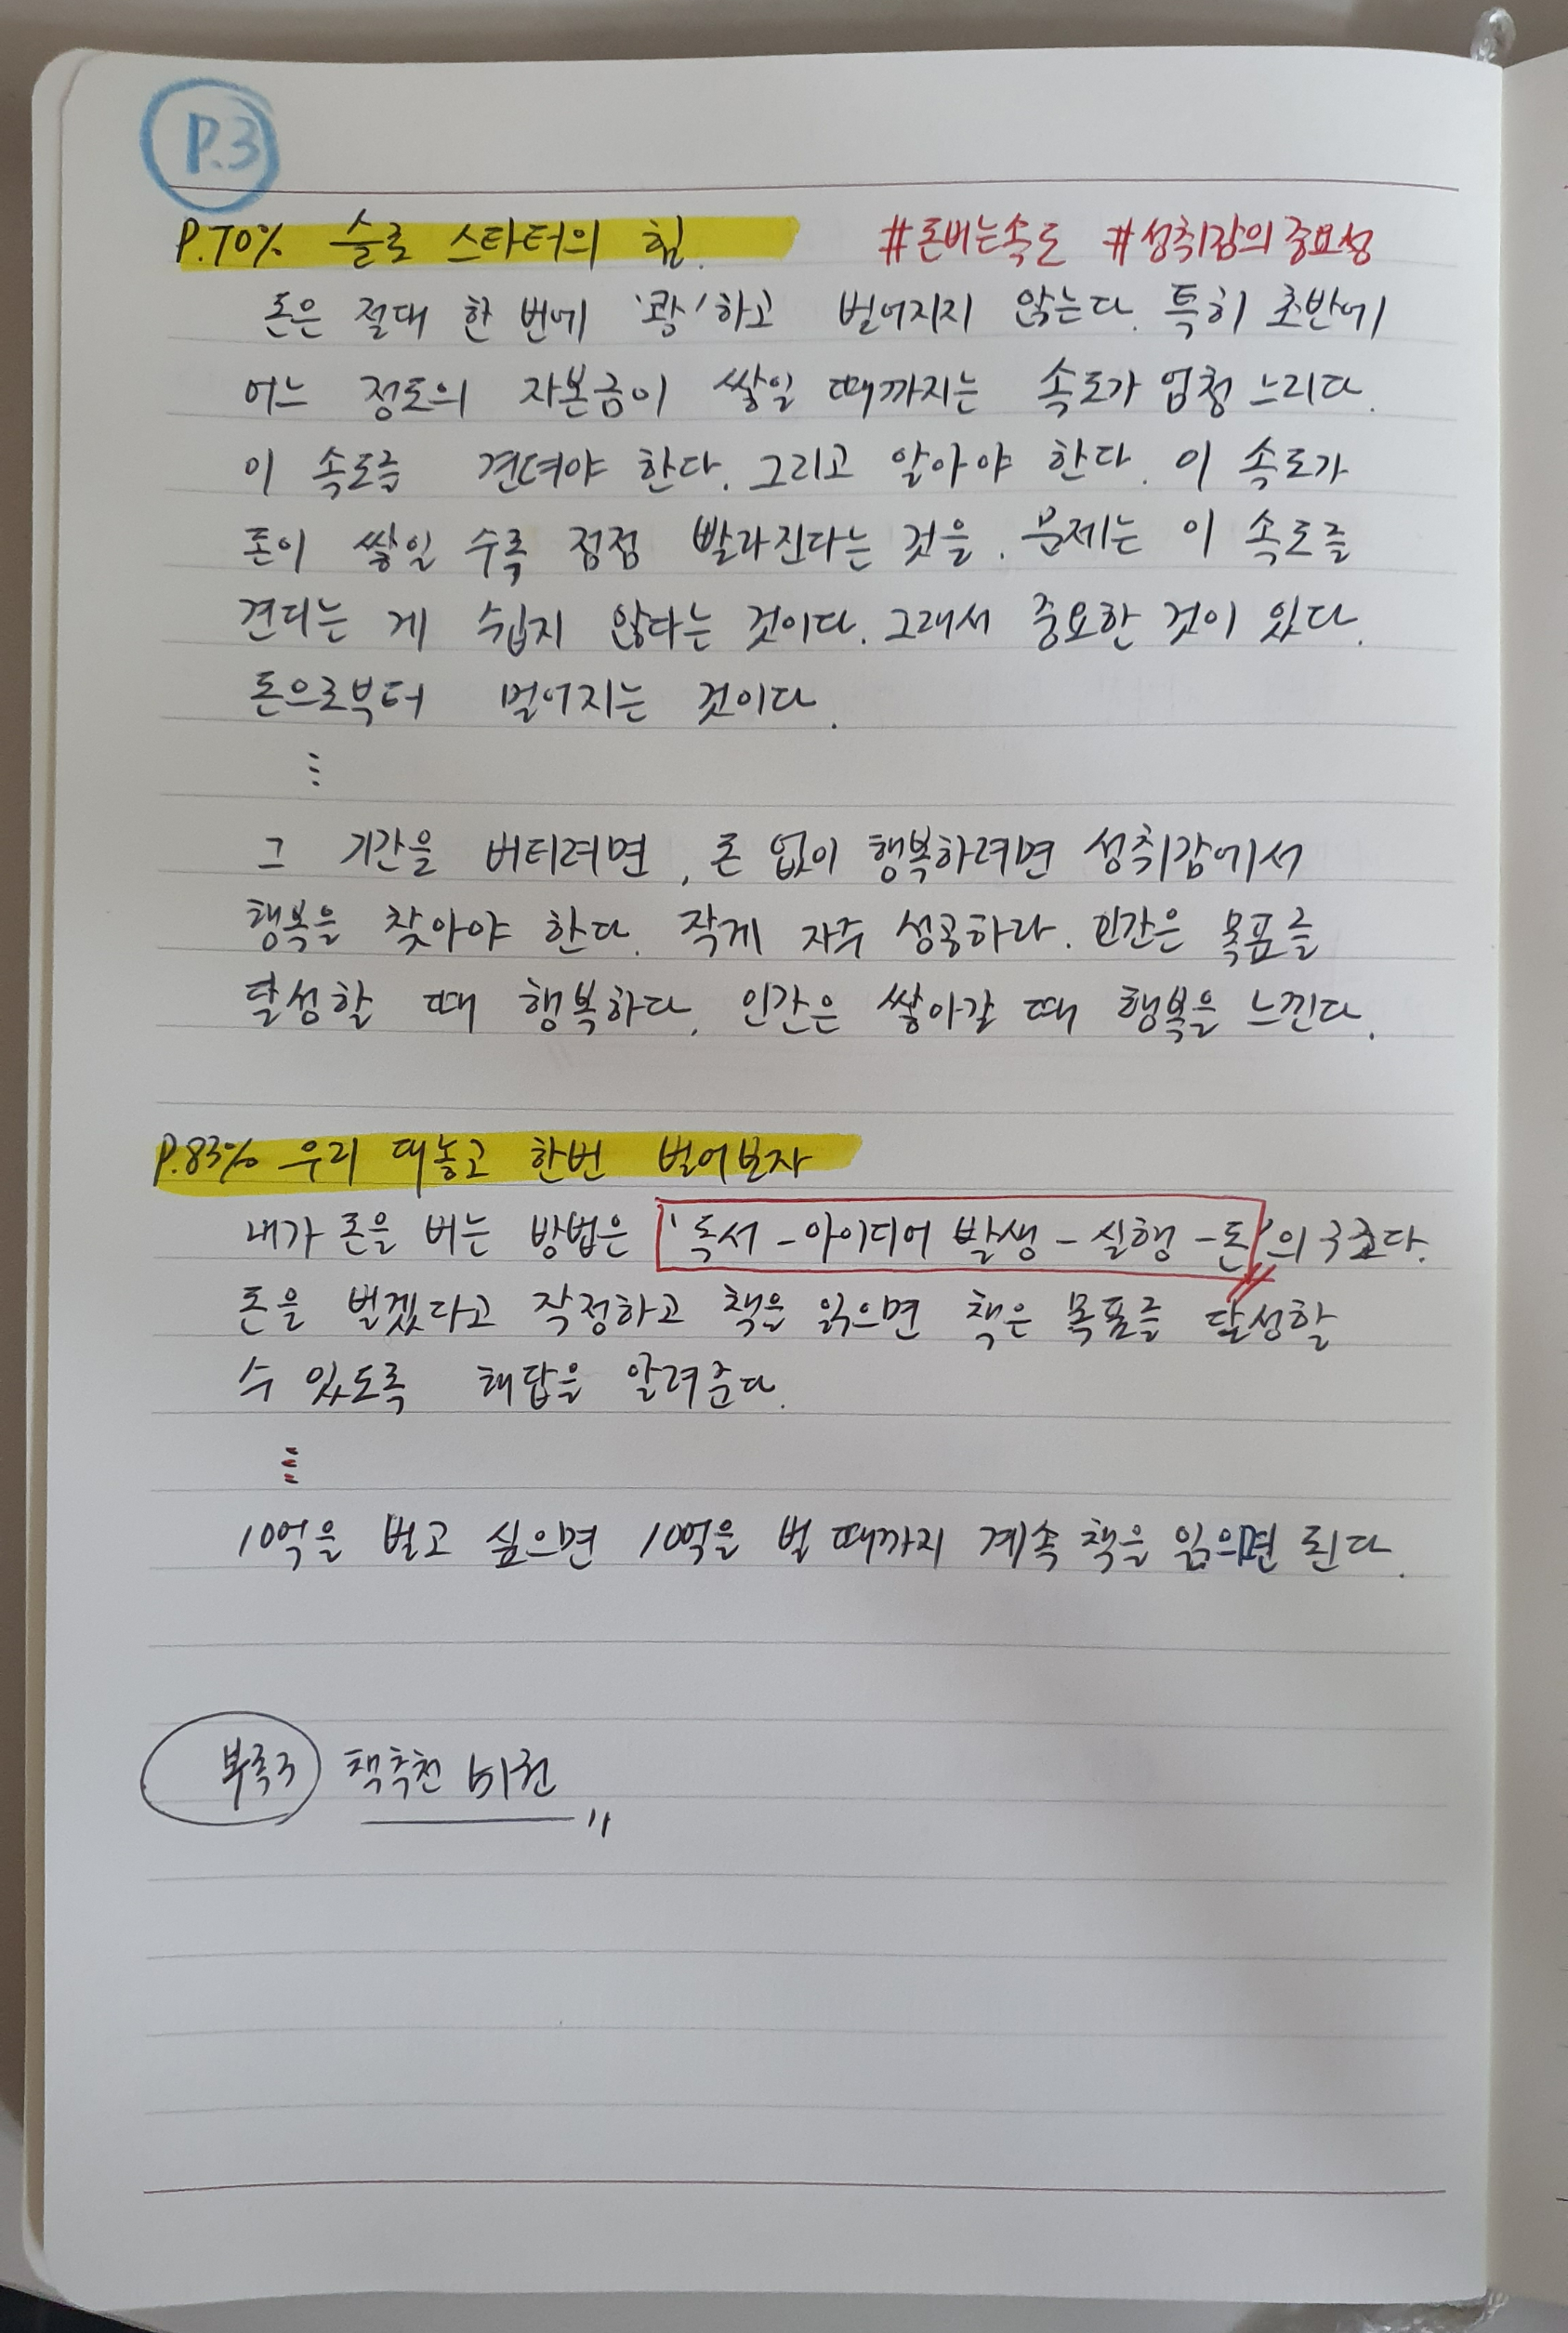 P.3
P.70% 슬로 스타터의 힘. #돈버는속도 #성취감의 중요성
돈은 절대 한 번에 '쾅'하고 벌어지지 않는다. 특히 초반에
어느 정도의 자본금이 쌓일 때까지는 속도가 엄청 느리다.
이 속도를 견뎌야 한다. 그리고 알아야 한다. 이 속도가
돈이 쌓일 수록 점점 빨라진다는 것을. 문제는 이 속도를
견디는 게 쉽지 않다는 것이다. 그래서 중요한 것이 있다.
돈으로부터 멀어지는 것이다.
⋮
그 기간을 버티려면, 돈 없이 행복하려면 성취감에서
행복을 찾아야 한다. 작게 자주 성공하라. 인간은 목표를
달성할 때 행복하다. 인간은 쌓아갈 때 행복을 느낀다.
P.83% 우리 대놓고 한번 벌어보자
내가 돈을 버는 방법은 '독서-아이디어 발생-실행-돈'의 구조다.
돈을 벌겠다고 작정하고 책을 읽으면 책은 목표를 달성할
수 있도록 해답을 알려준다.
⋮
10억을 벌고 싶으면 10억을 벌 때까지 계속 책을 읽으면 된다.
부록3 책추천 51권 〃